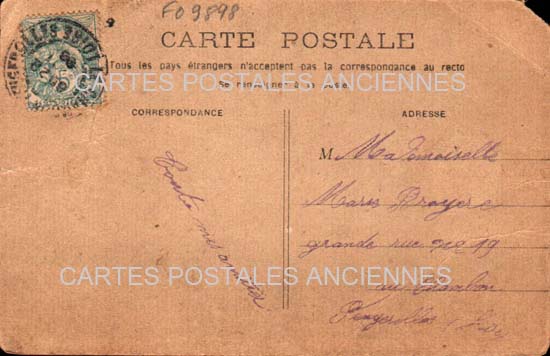 FO 9898
CARTE POSTALE
Tous les pays étrangers n'acceptent pas la correspondance au recto
Se renseigner à la poste.
CARTES POSTALES ANCIENNES
CORRESPONDANCE
ADRESSE
M Mademoiselle
Maria Broyere
grande rue n° 19
au Chambon
CARTES POSTALES ANCIENNES